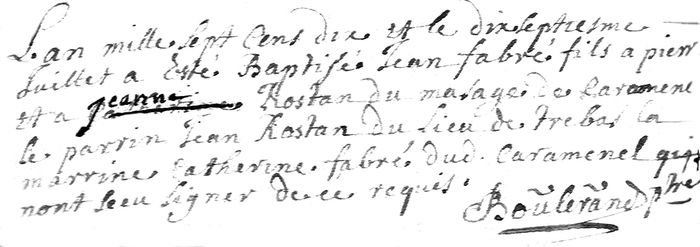 Lan mille sept Cens dix et le dixseptiesme
Juillet a Esté Baptisé Jean fabré fils a pierr
et a jeanne Rostan du masage de Caramene
le parrin Jean Rostan du lieu de trebas la
marrine Catherine fabré dud. Caramenel qui
nont sceu signer de ce requis.
Bouleránd ptre